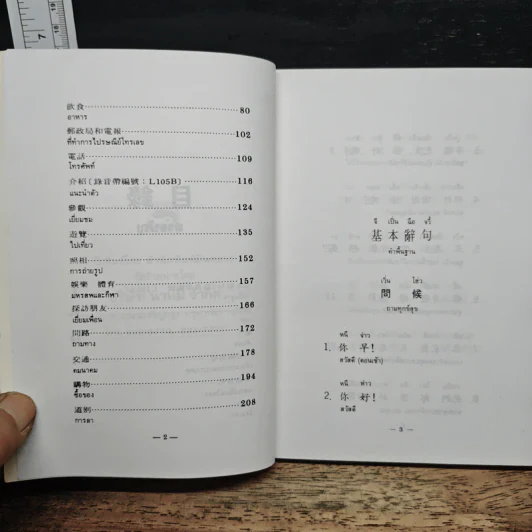 飲食 80
อาหาร
郵政局和電報 102
ที่ทำการไปรษณีย์โทรเลข
電話 109
โทรศัพท์
介紹〔錄音帶編號：L105B〕 116
แนะนำตัว
參觀 124
เยี่ยมชม
遊覽 135
ไปเที่ยว
照相 152
การถ่ายรูป
娛樂 體育 157
มหรสพและกีฬา
採訪朋友 166
เยี่ยมเพื่อน
問路 172
ถามทาง
交通 178
คมนาคม
購物 194
ซื้อของ
道別 208
การลา
— 2 —
จี เปิ่น ฉือ จวี้
基本辭句
คำพื้นฐาน
เวิ่น โฮ่ว
問候
ถามทุกข์สุข
หนี จ่าว
1. 你 早！
สวัสดี (ตอนเช้า)
หนี ห่าว
2. 你 好！
สวัสดี
— 3 —